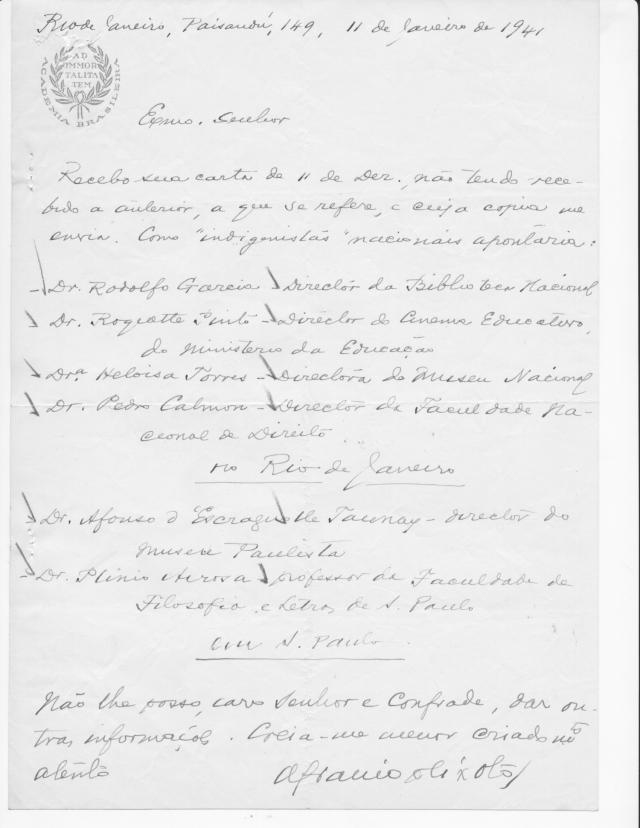 Rio de Janeiro, Paisandú, 149, 11 de Janeiro de 1941
ACADEMIA BRASILEIRA
AD
IMMOR
TALITA
TEM
Exmo. Senhor
Recebo sua carta de 11 de Dez., não tendo rece-
bido a anterior, a que se refere, e cuja copia me
envia. Como "indigenistas" nacionais apontaria:
- Dr. Rodolfo Garcia - Director da Biblioteca Nacional
Dr. Roquette Pinto - Director do Cinema Educativo,
do Ministerio da Educação
Drª Heloisa Torres - Directora do Museu Nacional
Dr. Pedro Calmon - Director da Faculdade Na-
cional de Direito...
no Rio de Janeiro
Dr. Afonso d'Escragnolle Taunay - director do
Museu Paulista
- Dr. Plinio Airosa - professor da Faculdade de
Filosofia e Letras de S. Paulo
em S. Paulo.
Não lhe posso, caro Senhor e Confrade, dar ou-
tras informações. Creia-me menor criado mtº
atento
Afranio Peixoto